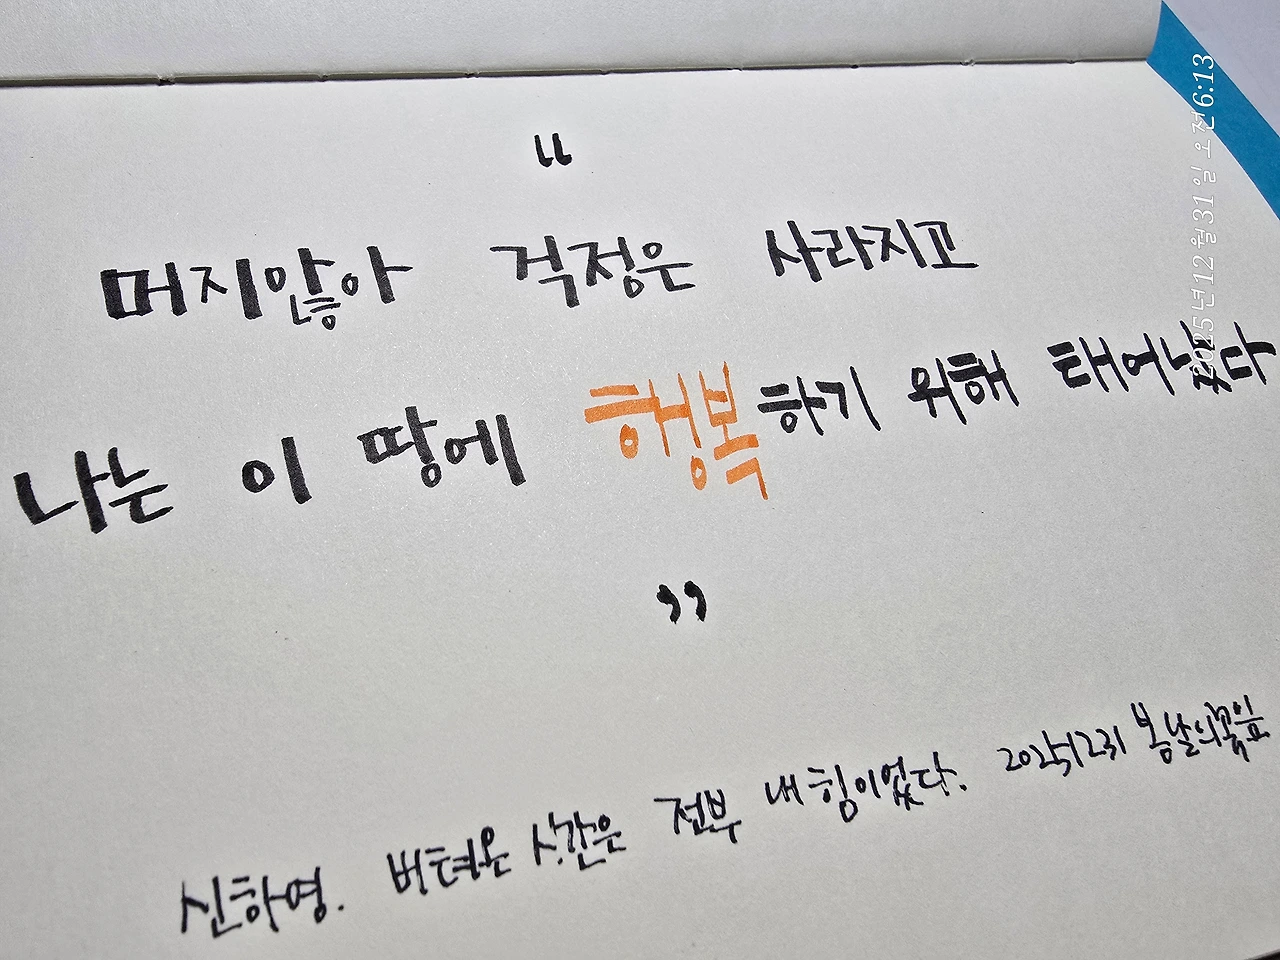 “
머지않아 걱정은 사라지고
나는 이 땅에 행복하기 위해 태어났다
”
신하영. 버텨온 시간은 전부 내 힘이었다. 20251231 봄날의꽃잎
2025년 12월 31일 오전 6:13